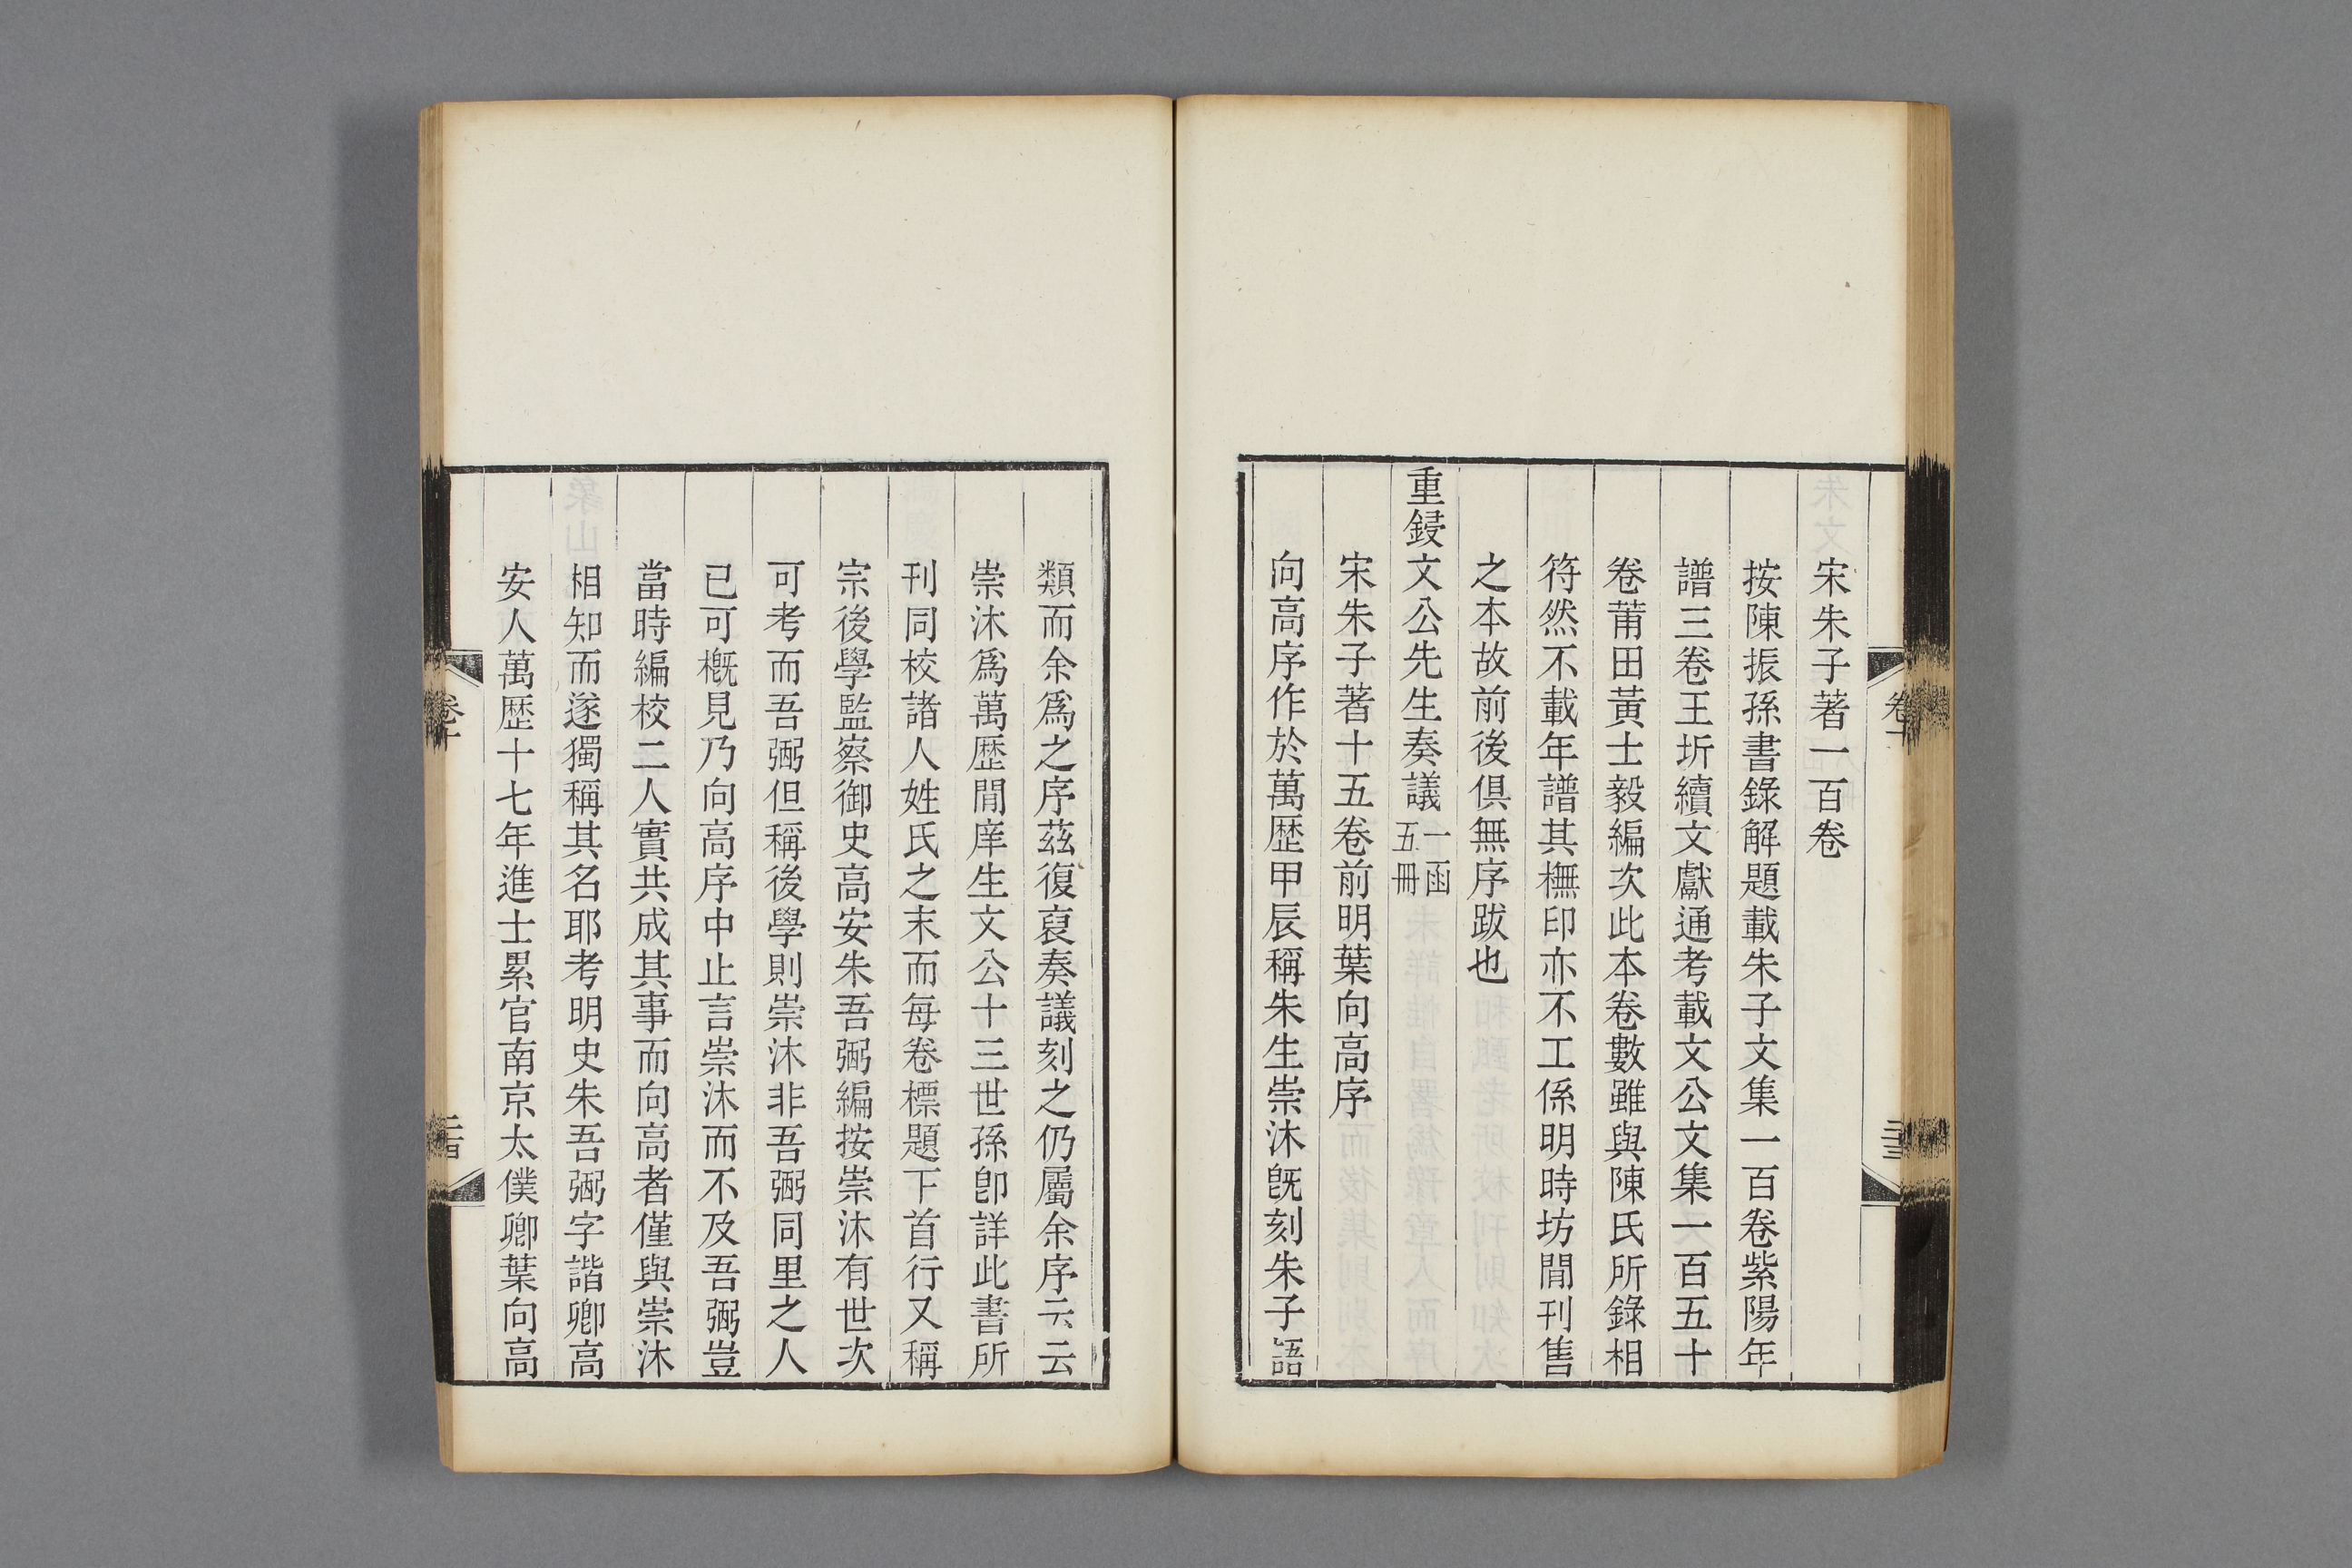 宋朱子著一百卷
按陳振孫書錄解題載朱子文集一百卷紫陽年
譜三卷王圻續文獻通考載文公文集一百五十
卷莆田黃士毅編次此本卷數雖與陳氏所錄相
符然不載年譜其橅印亦不工係明時坊閒刊售
之本故前後俱無序跋也
重鋟文公先生奏議一函
五冊
宋朱子著十五卷前明葉向高序
向高序作於萬歴甲辰稱朱生崇沐旣刻朱子語
類而余爲之序茲復裒奏議刻之仍屬余序云云
崇沐爲萬歴閒庠生文公十三世孫卽詳此書所
刊同校諸人姓氏之末而每卷標題下首行又稱
宗後學監察御史高安朱吾弼編按崇沐有世次
可考而吾弼但稱後學則崇沐非吾弼同里之人
已可槪見乃向高序中止言崇沐而不及吾弼豈
當時編校二人實共成其事而向高者僅與崇沐
相知而遂獨稱其名耶考明史朱吾弼字諧卿高
安人萬歴十七年進士累官南京太僕卿葉向高
卷十